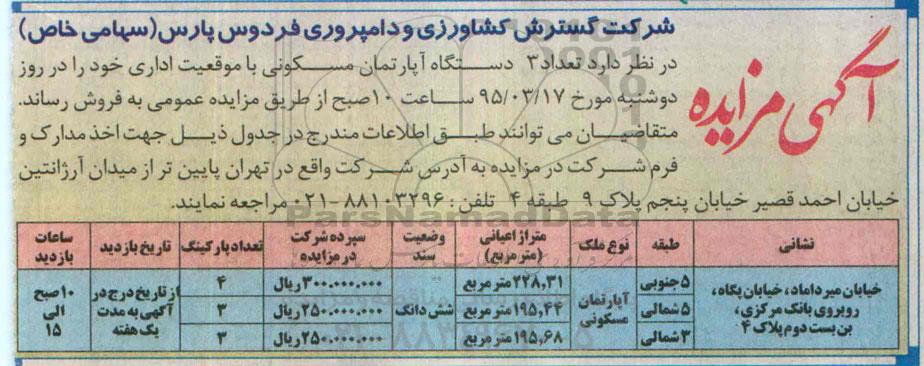 آگهی مزایده
شرکت گسترش کشاورزی و دامپروری فردوس پارس (سهامی خاص)
در نظر دارد تعداد ۳ دستگاه آپارتمان مسکونی با موقعیت اداری خود را در روز
دوشنبه مورخ ۹۵/۰۳/۱۷ ساعت ۱۰صبح از طریق مزایده عمومی به فروش رساند.
متقاضیان می توانند طبق اطلاعات مندرج در جدول ذیل جهت اخذ مدارک و
فرم شرکت در مزایده به آدرس شرکت واقع در تهران پایین تر از میدان آرژانتین
خیابان احمد قصیر خیابان پنجم پلاک ۹ طبقه ۴ تلفن: ۸۸۱۰۳۲۹۶-۰۲۱ مراجعه نمایند.
ParsNamadData
نشانی طبقه نوع ملک متراژ اعیانی (متر مربع) وضعیت سند سپرده شرکت در مزایده تعداد پارکینگ تاریخ بازدید ساعات بازدید
خیابان میرداماد، خیابان پگاه، روبروی بانک مرکزی، بن بست دوم پلاک ۴
آپارتمان مسکونی
شش دانگ
۵جنوبی ۲۲۸,۳۱متر مربع ۳۰۰.۰۰۰.۰۰۰ریال ۴
۵شمالی ۱۹۵,۴۴متر مربع ۲۵۰.۰۰۰.۰۰۰ریال ۳
۳شمالی ۱۹۵,۶۸متر مربع ۲۵۰.۰۰۰.۰۰۰ریال ۳
از تاریخ درج در آگهی به مدت یک هفته
۱۰صبح الی ۱۵